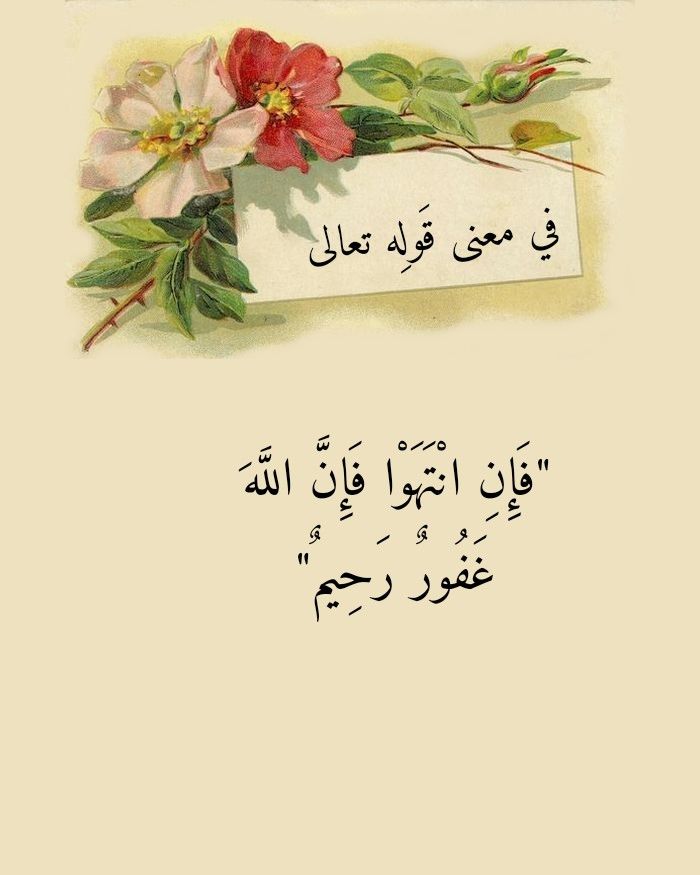 في معنى قَولِه تعالى
"فَإِنِ انْتَهَوْا فَإِنَّ اللَّهَ
غَفُورٌ رَحِيمٌ"